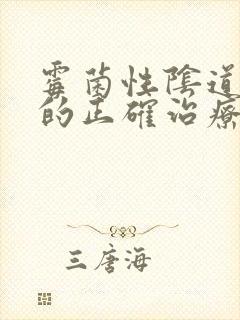 霉菌性陰道
的正確治療
三唐海